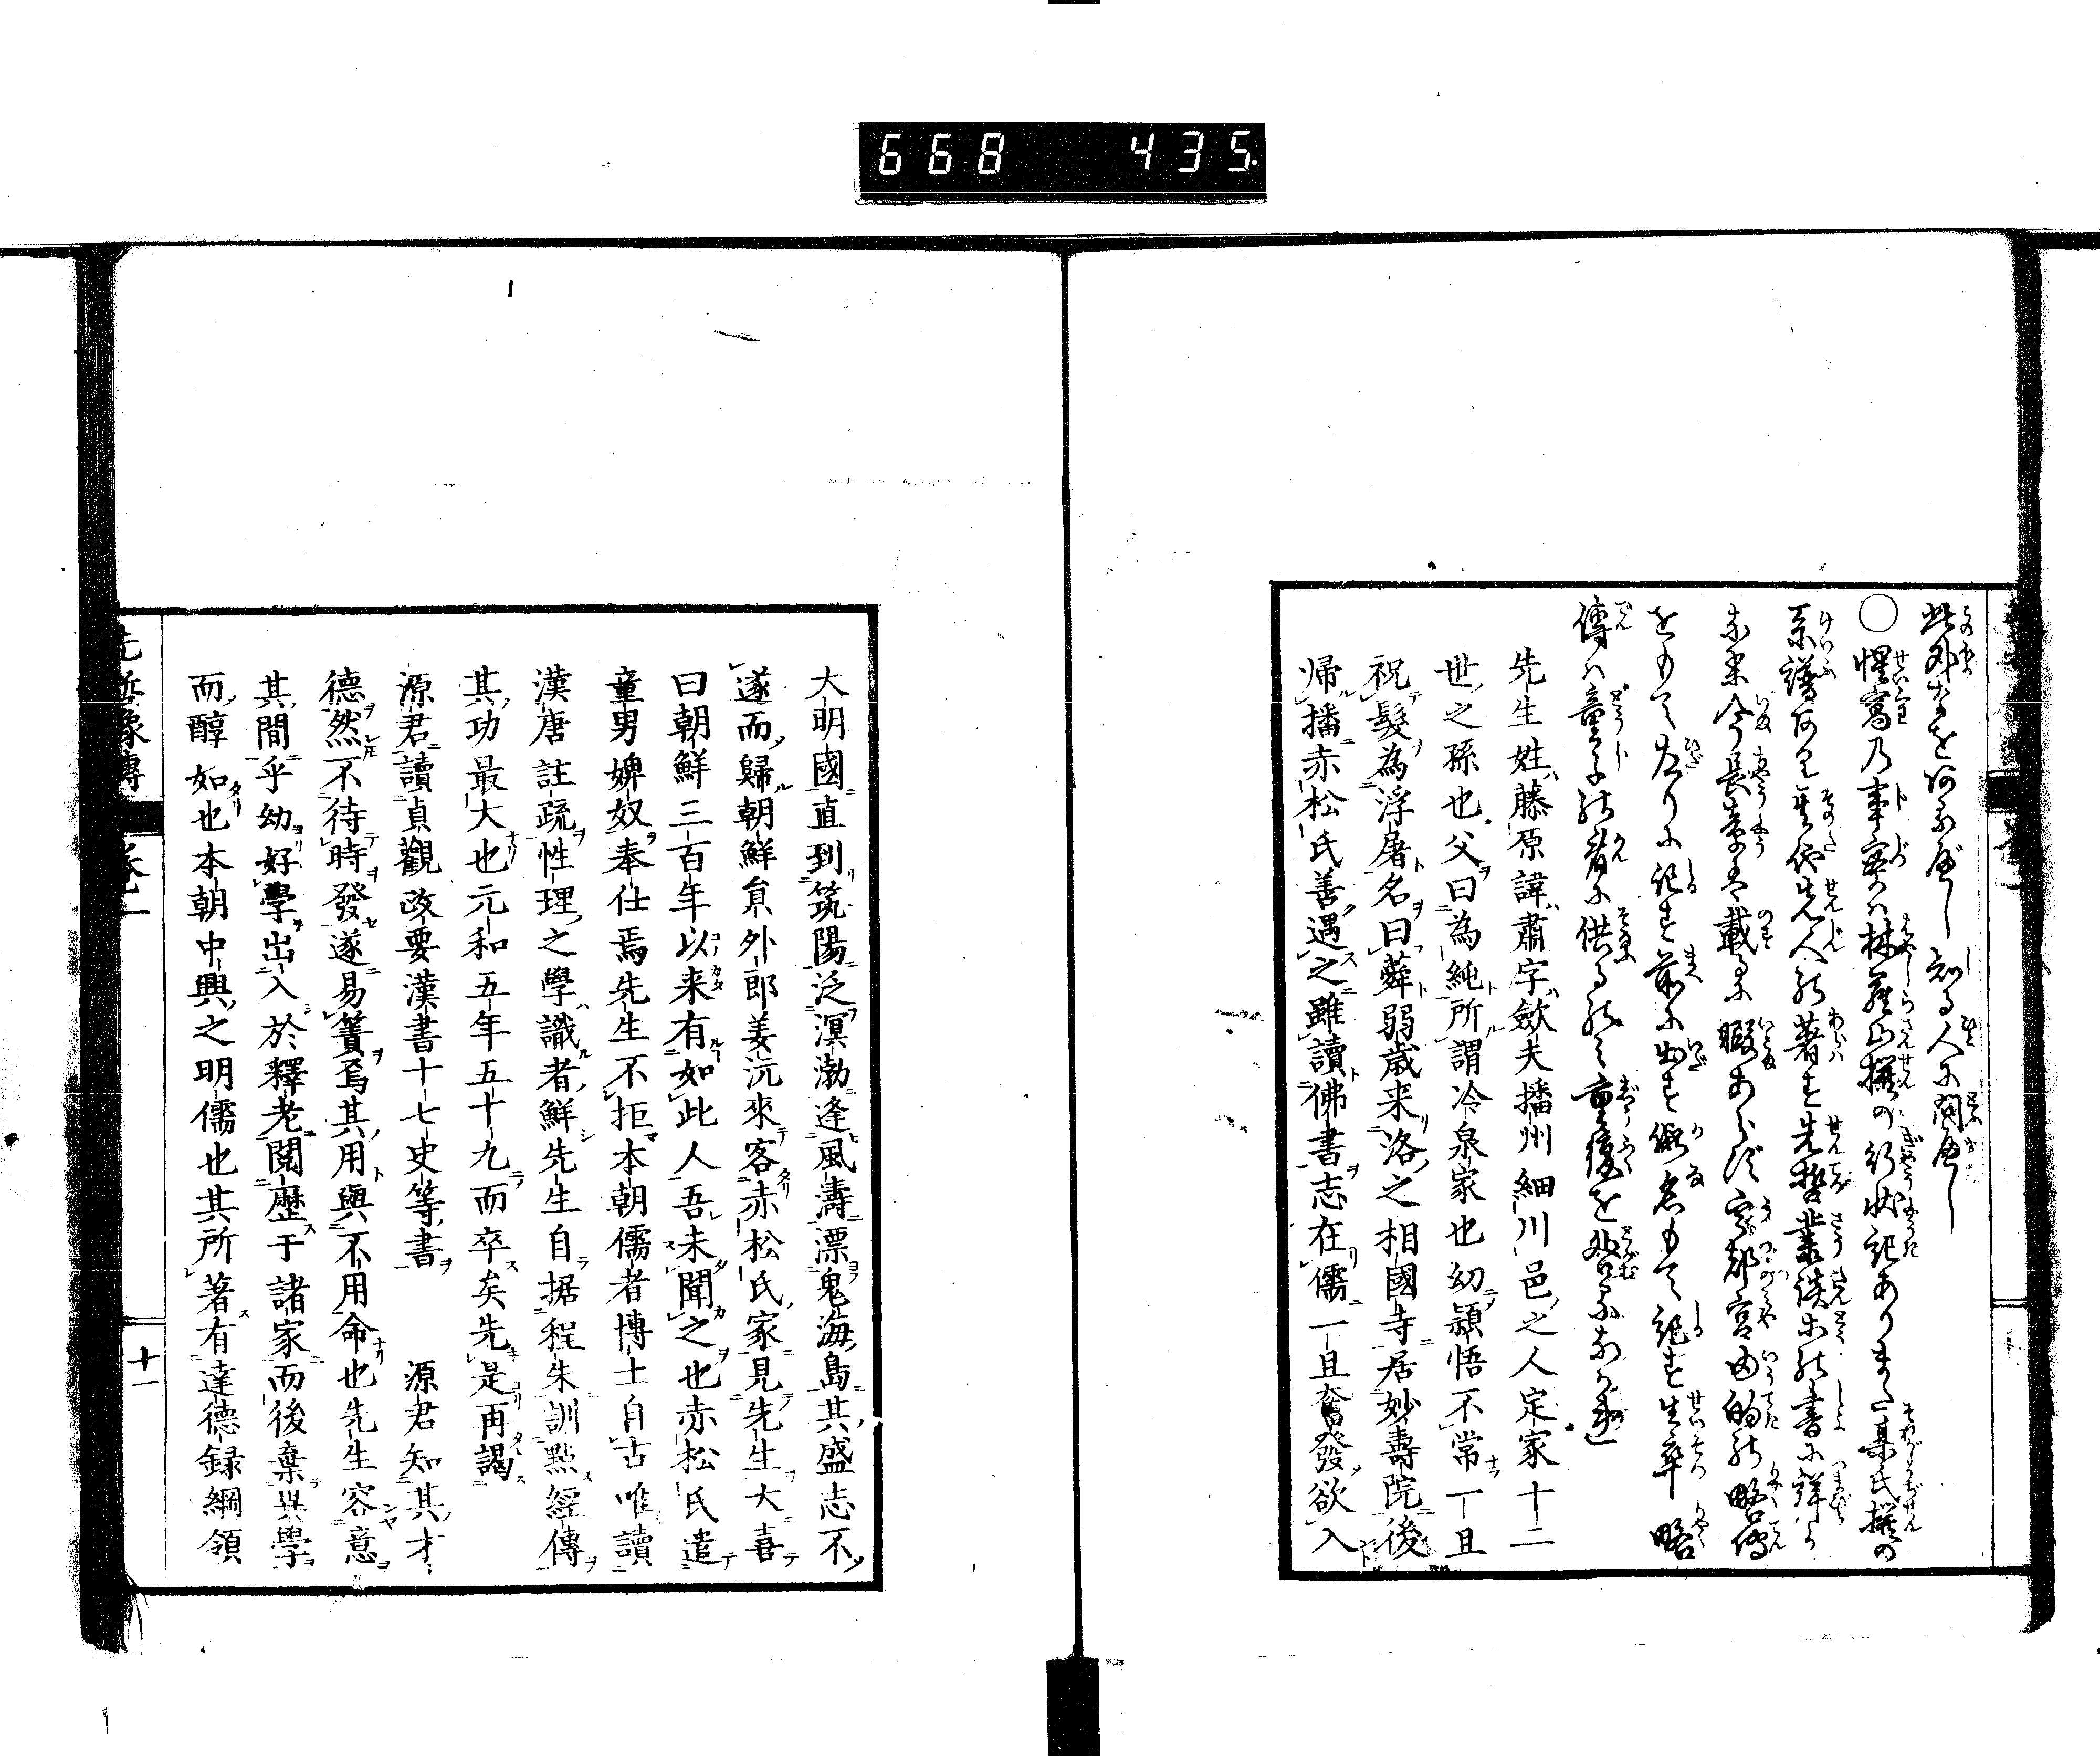 668 435
此外なを阿るべし知る人に問べし
○惺窩乃事実ハ林羅山撰の行状記ありまた某氏撰の
系譜阿り其他先人の著す先哲叢談等の書に詳なり
未来今長きを載るに暇あらず宇都宮由的の略傳
をもて左りに記す前に出す假名もて記す生卒略
傳ハ童子の育に供るのミ重復を咎るなかれ
先生姓藤原諱肅字歛夫播州細川邑之人定家十二
世之孫也父曰為純所謂冷泉家也幼頴悟不常丁且
祝髮為浮屠名曰蕣弱歳来洛之相國寺居妙壽院後
帰播赤松氏善遇之雖讀佛書志在儒一旦奮發欲入
大明國直到筑陽泛溟渤逢風濤漂鬼海島其盛志不
遂而歸朝鮮員外郎姜沆來客赤松氏家見先生大喜
曰朝鮮三百年以来有如此人吾未聞之也赤松氏遣
童男婢奴奉仕焉先生不拒本朝儒者博士自古唯讀
漢唐註疏性理之學識者鮮先生自据程朱訓點經傳
其功最大也元和五年五十九而卒矣先是再謁
源君讀貞觀政要漢書十七史等書　源君知其才
德然不待時發遂易簀焉其用與不用命也先生容意
其間乎幼好學出入於釋老閲歴于諸家而後棄異學
而醇如也本朝中興之明儒也其所著有達德録綱領
先哲像傳　卷一　十一